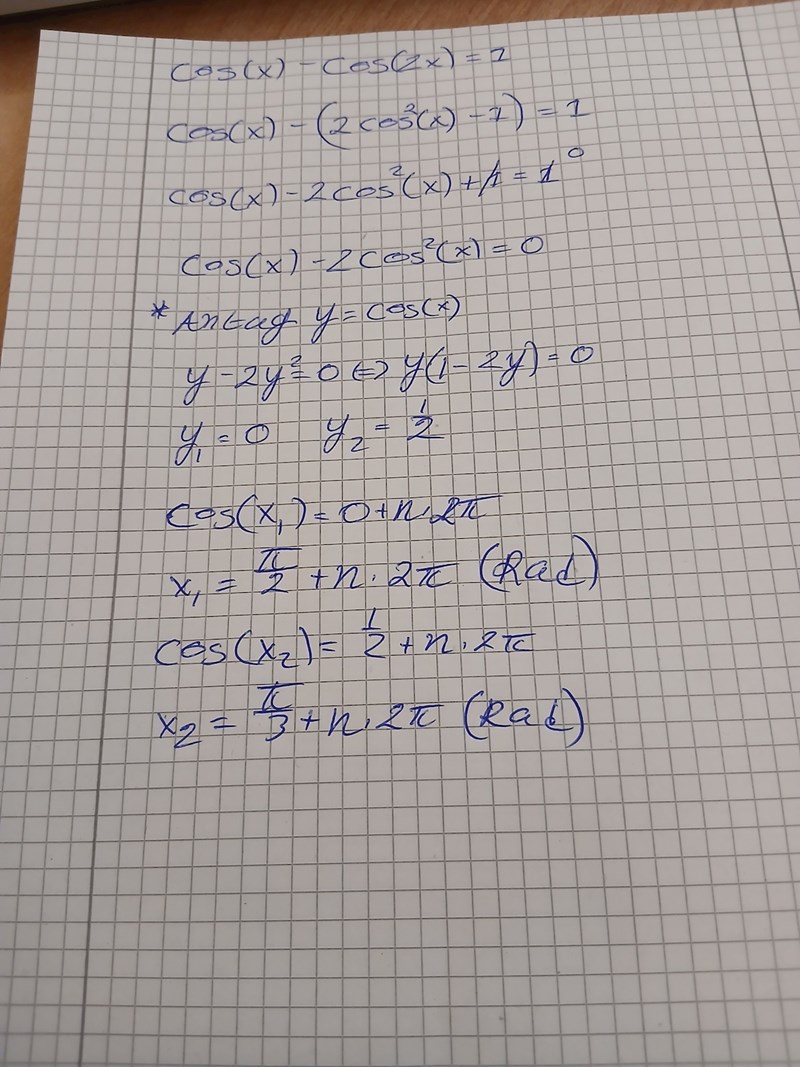 cos(x) - cos(2x) = 1
cos(x) - (2cos²(x) - 1) = 1
cos(x) - 2cos²(x) + 1 = 1 0
cos(x) - 2cos²(x) = 0
* Antag y = cos(x)
y - 2y² = 0 ⇔ y(1 - 2y) = 0
y₁ = 0 y₂ = 1/2
cos(x₁) = 0 + n·2π
x₁ = π/2 + n·2π (Rad)
cos(x₂) = 1/2 + n·2π
x₂ = π/3 + n·2π (Rad)